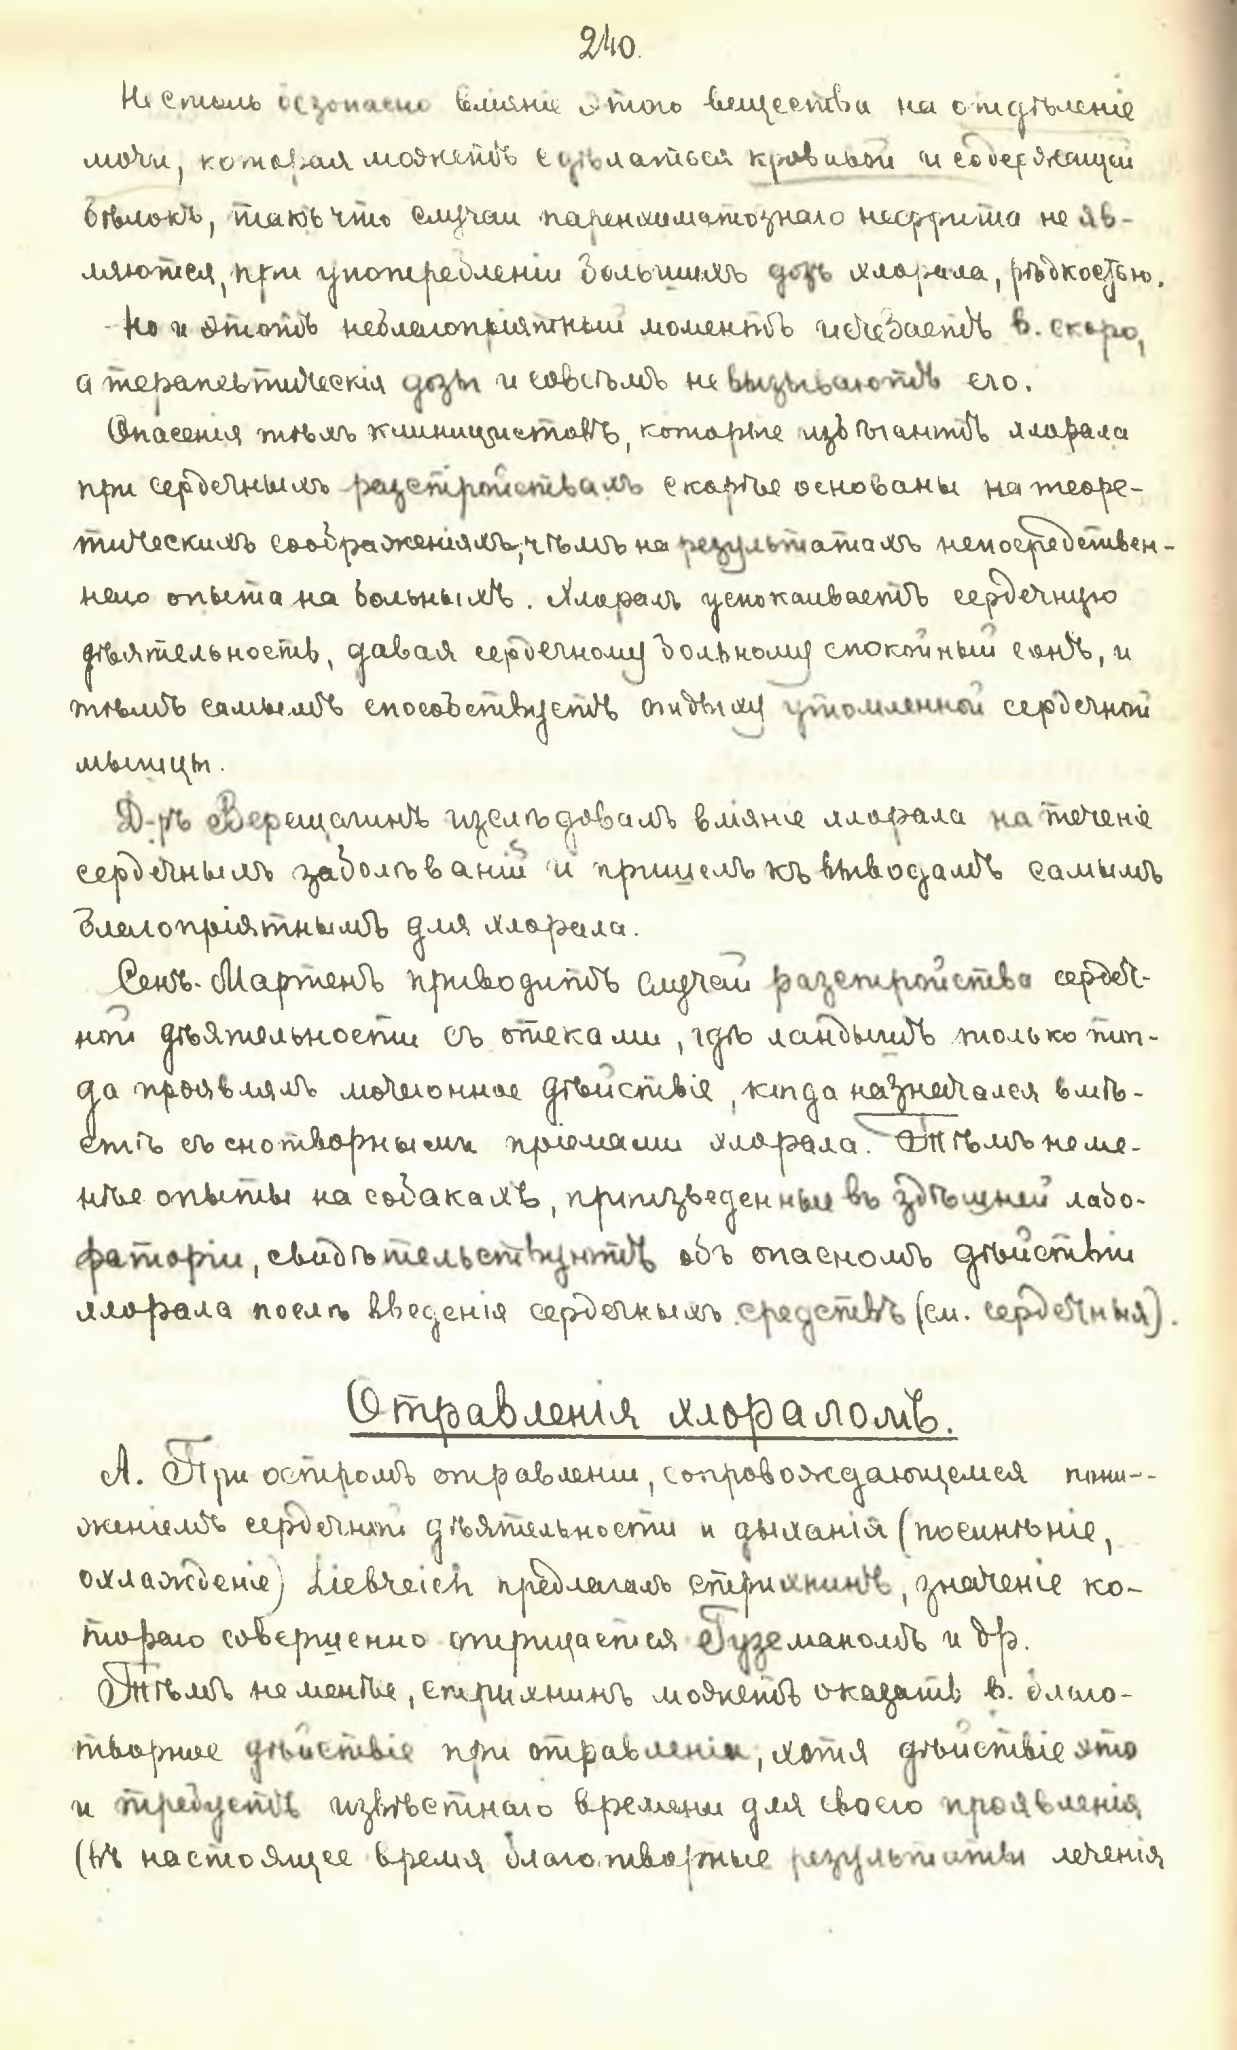 240.
Не столь безопасно вліяніе этого вещества на отдѣленіе
мочи, которая можетъ сдѣлаться кровавой и содержащей
бѣлокъ, такъ что случаи паренхиматознаго нефрита не яв-
ляются, при употребленіи большихъ дозъ хлорала, рѣдкостью.
Но и этотъ неблагопріятный моментъ исчезаетъ в. скоро,
а терапевтическія дозы и совсѣмъ не вызываютъ его.
Опасенія тѣхъ клиницистовъ, которые избѣгаютъ хлорала
при сердечныхъ разстройствахъ скорѣе основаны на теоре-
тическихъ соображеніяхъ, чѣмъ на результатахъ непосредствен-
наго опыта на больныхъ. Хлоралъ успокаиваетъ сердечную
дѣятельность, давая сердечному больному спокойный сонъ, и
тѣмъ самымъ способствуетъ отдыху утомленной сердечной
мышцы.
Д-ръ Верещагинъ изслѣдовалъ вліяніе хлорала на теченіе
сердечныхъ заболѣваній и пришелъ къ выводамъ самымъ
благопріятнымъ для хлорала.
Сенъ-Мартенъ приводитъ случай разстройства сердеч-
ной дѣятельности съ отеками, гдѣ ландышъ только тог-
да проявлялъ мочегонное дѣйствіе, когда назначался вмѣ-
стѣ съ снотворными пріемами хлорала. Тѣмъ не ме-
нѣе опыты на собакахъ, произведенные въ здѣшней лабо-
раторіи, свидѣтельствуютъ объ опасномъ дѣйствіи
хлорала послѣ введенія сердечныхъ средствъ (см. сердечныя).
Отравленія хлораломъ.
А. При остромъ отравленіи, сопровождающемся пони-
женіемъ сердечной дѣятельности и дыханія (посинѣніе,
охлажденіе) Liebreich предлагалъ стрихнинъ, значеніе ко-
тораго совершенно отрицается Гуземаномъ и др.
Тѣмъ не менѣе, стрихнинъ можетъ оказать в. благо-
творное дѣйствіе при отравленіи, хотя дѣйствіе это
и требуетъ извѣстнаго времени для своего проявленія
(въ настоящее время благотворные результаты леченія